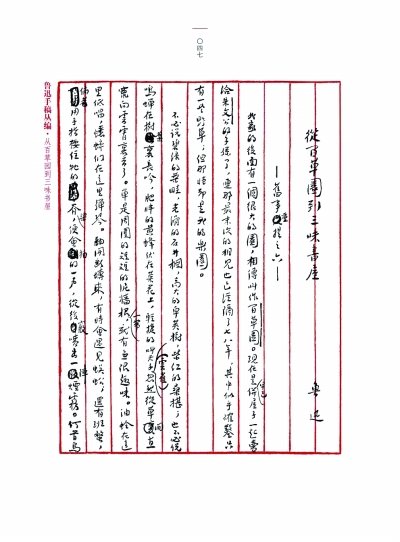 〇四七
從百草園到三味書屋
——舊事重提之六——
魯迅
我家的後面有一個很大的園，相傳叫作百草園。現在是早已併屋子一起賣
給朱文公的子孫了，連那最末次的相見也已經隔了七八年，其中似乎確鑿只
有一些野草；但那時卻是我的樂園。
不必說碧綠的菜畦，光滑的石井欄，高大的皂莢樹，紫紅的桑椹；也不必說
鳴蟬在樹葉裏長吟，肥胖的黃蜂伏在菜花上，輕捷的叫天子（雲雀）忽然從草間直
竄向雲霄裏去了。單是周圍的短短的泥牆根一帶，就有無限趣味。油蛉在這
里低唱，蟋蟀們在這里彈琴。翻開斷磚來，有時會遇見蜈蚣；還有斑蝥，
倘若用手指按住牠的脊梁，便會拍的一聲，從後竅噴出一陣煙霧。何首烏
鲁迅手稿丛编·从百草园到三味书屋